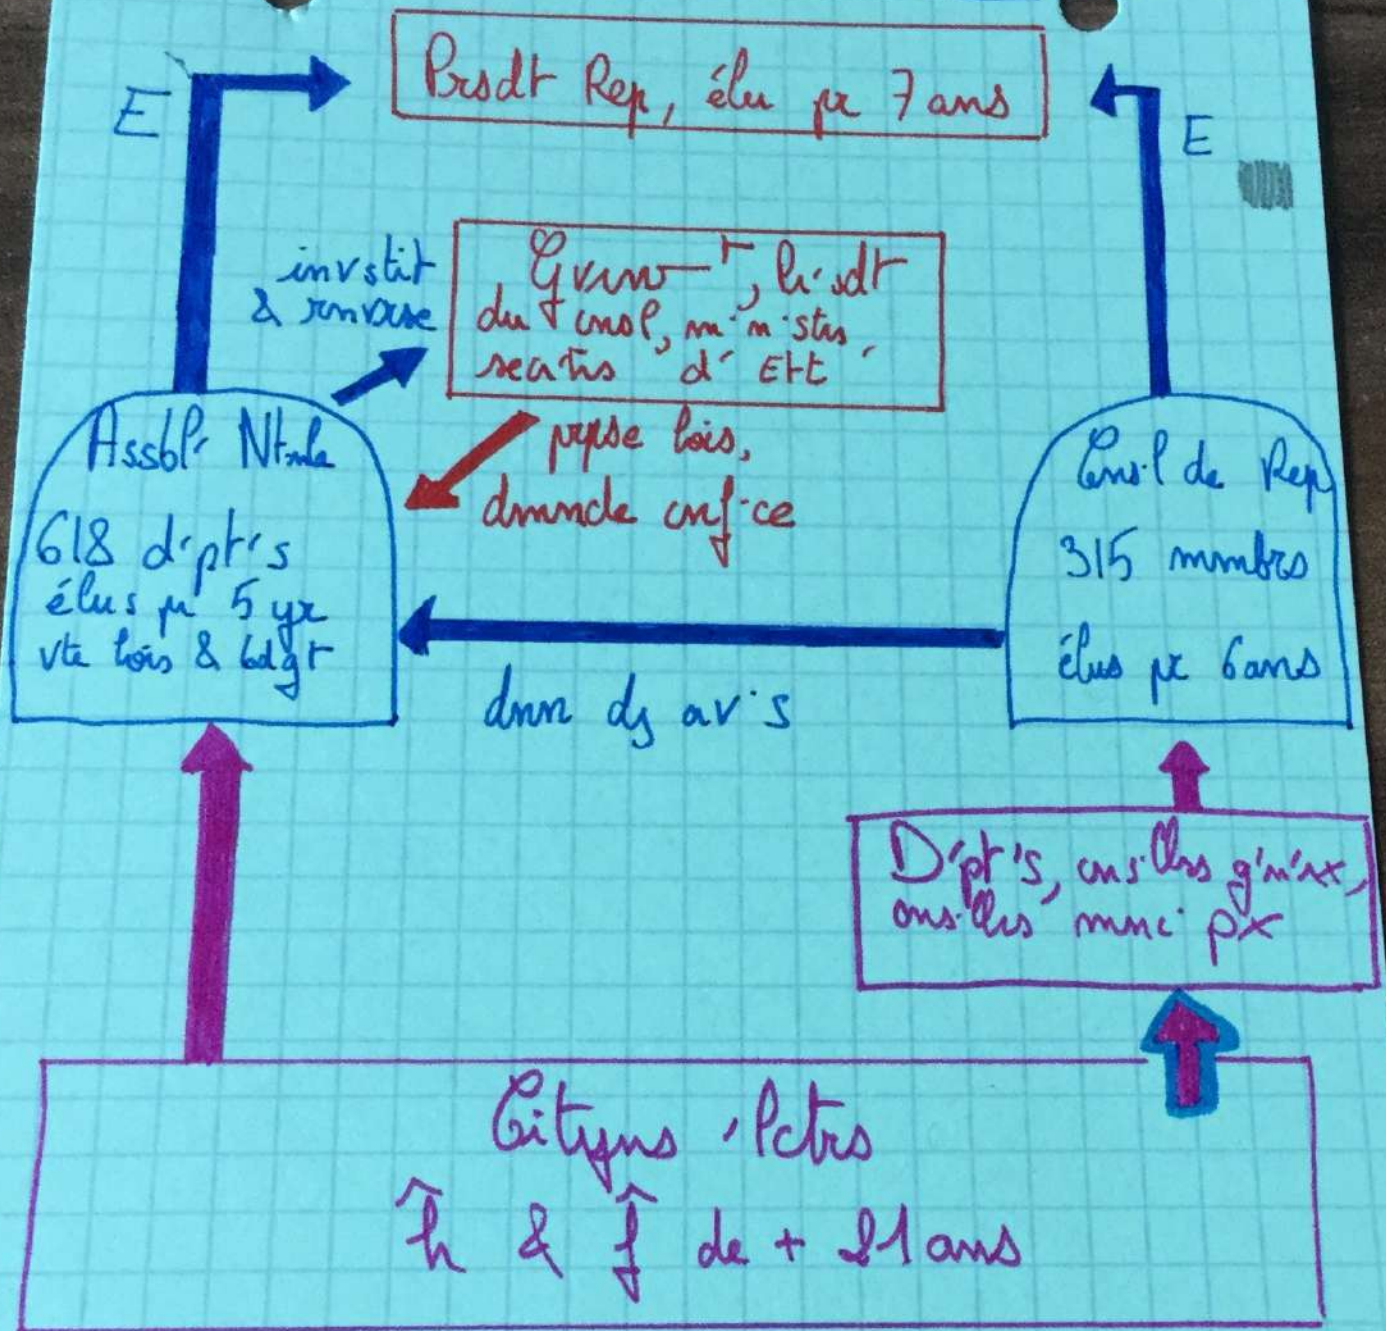 Prsdt Rep, élu pr 7 ans
E
E
invstit
& rnvrse
Gvrn—t, Pr'sdt
du cnsl, m'n'strs,
secrtrs d' Ett
prpse lois,
dmnde cnf·ce
Assbl' Ntnle
618 d'pt's
élus pr 5
vte lois & bdgt
Cnsl de Rep
315 mmbrs
élus pr 6 ans
dnn ds av's
D'pt's, cns·llrs g'n'rx,
cns·llrs mnc·px
Cityns 'lctrs
ĥ & f̂ de + 21 ans